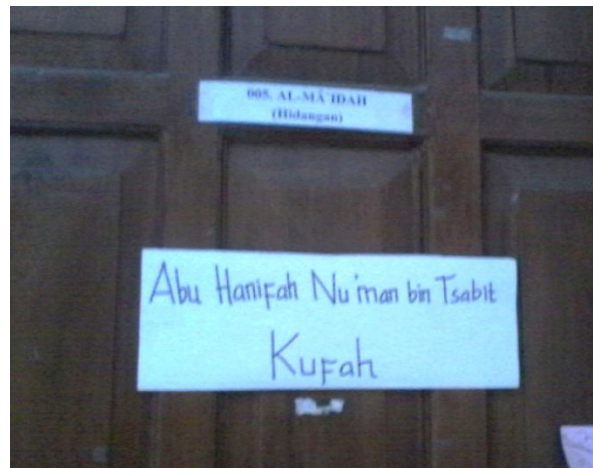 005. AL-MÂ'IDAH
(Hidangan)
Abu Hanifah Nu'man bin Tsabit
Kufah